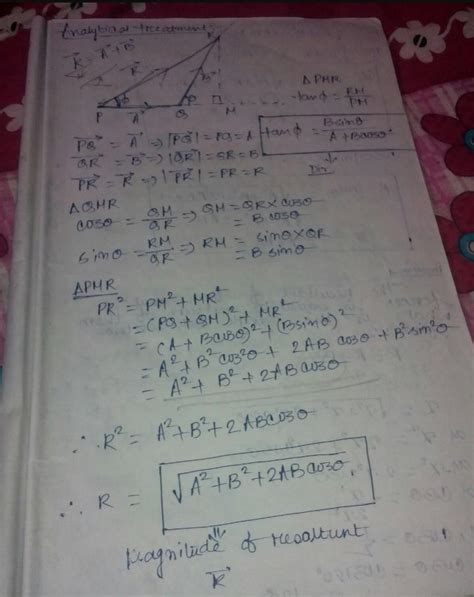 Analytical treatment:
R⃗ = A⃗ + B⃗
R
R⃗
B⃗
ϕ
θ
P A⃗ Q M
ΔPMR
tanϕ = RM/PM
tanϕ = Bsinθ/A+Bcosθ
Dir
PQ⃗ = A⃗ => |PQ⃗| = PQ = A
QR⃗ = B⃗ => |QR⃗| = QR = B
PR⃗ = R⃗ => |PR⃗| = PR = R
ΔQMR
cosθ = QM/QR => QM = QR×cosθ
= B cosθ
sinθ = RM/QR => RM = sinθ×QR
= B sinθ
ΔPMR
PR² = PM² + MR²
= (PQ + QM)² + MR²
= (A + Bcosθ)² + (Bsinθ)²
= A² + B²cos²θ + 2AB cosθ + B²sin²θ
= A² + B² + 2ABcosθ
∴ R² = A²+B²+2ABcosθ
∴ R = √A²+B²+2ABcosθ
Magnitude of resoltunt
R⃗